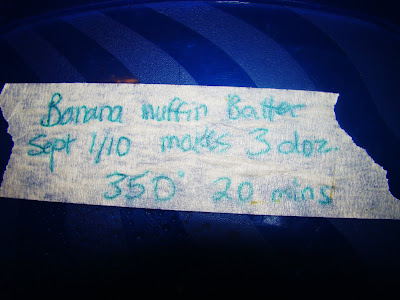 Banana muffin Batter
Sept 1/10 makes 3 doz.
350° 20 mins